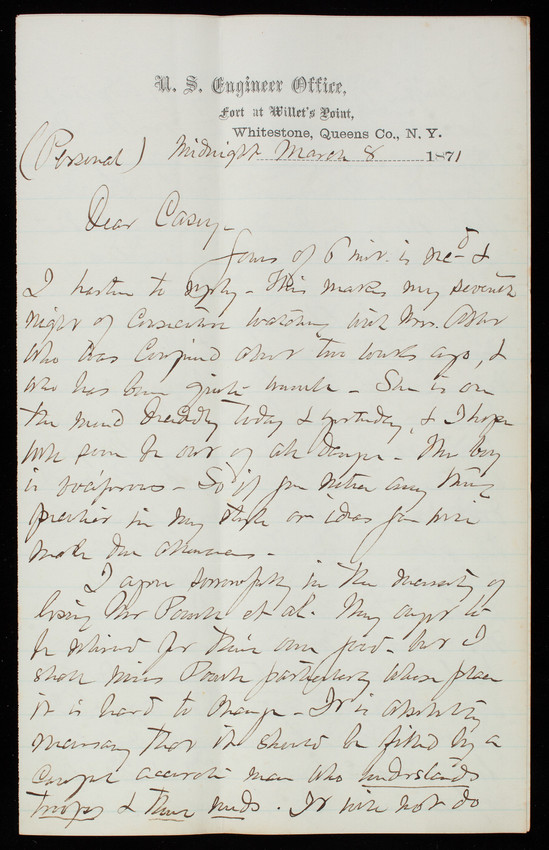 U. S. Engineer Office,
Fort at Willet's Point,
Whitestone, Queens Co., N. Y.
(Personal) Midnight March 8 1871
Dear Casey –
Yours of 6 inst. is rec'd &
I hasten to reply – This makes my seventh
night of consecutive watching with Mrs. Abbot
who was confined about two weeks ago, &
who has been quite unwell – She is on
the mend decidedly today & yesterday, & I hope
will soon be out of all danger – The boy
is vociferous – So if you notice any thing
peculiar in my style or ideas you will
make due allowance –
I agree sorrowfully in the necessity of
losing Mr et al. They ought to
be relieved for their own good – but I
shall miss particularly whose place
it is hard to change – It is absolutely
necessary that it should be filled by a
careful accurate man who understands
troops & their needs. It will not do